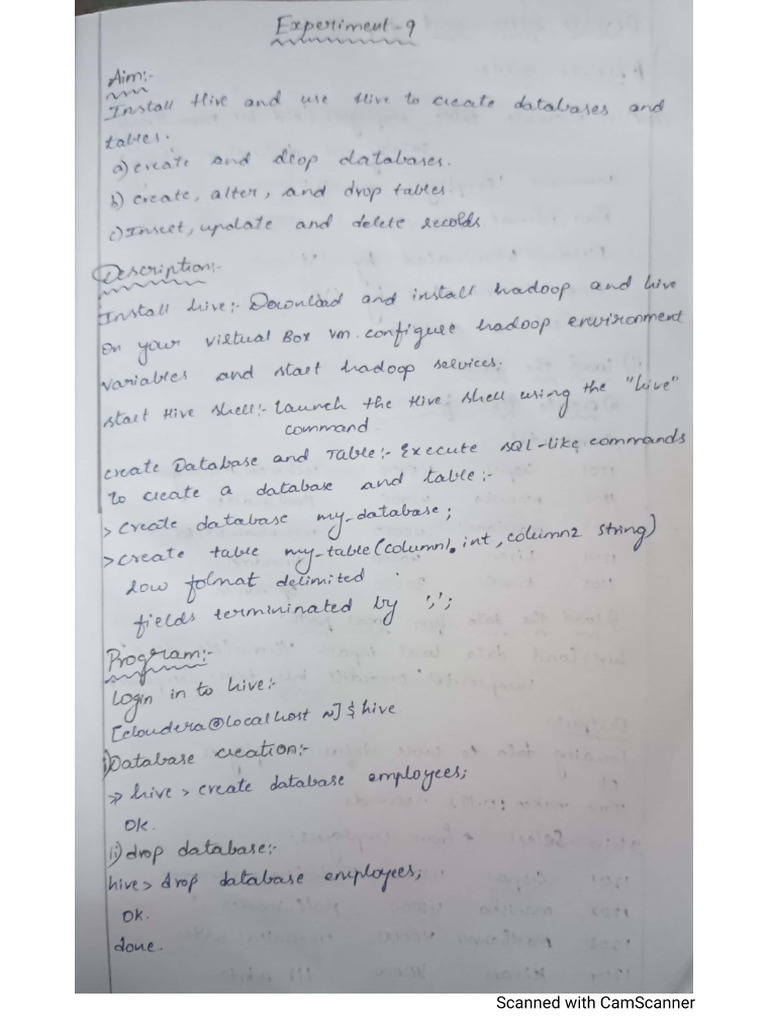 Experiment-9
Aim:-
Install Hive and use Hive to create databases and
tables.
a) create and drop databases.
b) create, alter, and drop tables.
c) Insert, update and delete records
Description:-
Install hive:- Download and install hadoop and hive
on your virtual Box vm. configure hadoop environment
variables and start hadoop services.
start Hive shell:- Launch the Hive shell using the "hive"
command
create Database and Table:- Execute SQL-like commands
to create a database and table:-
> create database my_database;
> create table my_table(column1 int, column2 string)
row format delimited
fields termininated by ',';
Program:-
Login in to hive:-
[cloudera@localhost ~]$ hive
i) Database creation:-
>> hive > create database employees;
OK.
ii) drop database:-
hive > drop database employees;
OK.
done.
Scanned with CamScanner